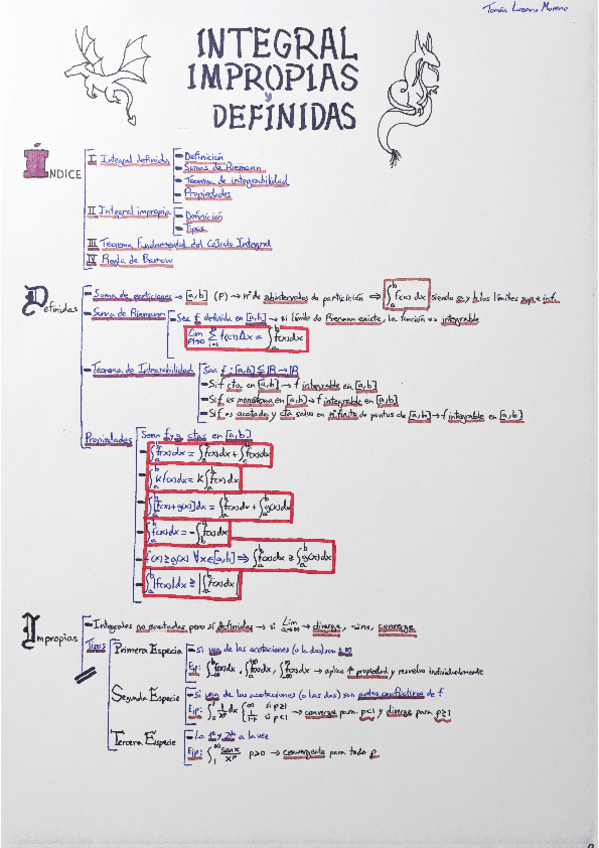 Tomás Lozano Moreno
INTEGRAL
IMPROPIAS
y
DEFINIDAS
ÍNDICE
I Integral definida
- Definición
- Sumas de Riemann
- Teorema de integrabilidad
- Propiedades
II Integral impropia
- Definición
- Tipos
III Teorema Fundamental del Cálculo Integral
IV Regla de Barrow
Definidas
- Suma de particiones → [a,b] (P) → nº de subintervalos da partición ⇒ ∫_a^b f(x) dx siendo a y b los límites sup e inf.
- Suma de Riemann
- Sea f definida en [a,b] → si límite de Riemann existe, la función es integrable
∫_a^b f(x)dx
- Teorema de Integrabilidad
- Sea f: [a,b] ⊆ ℝ → ℝ
- Si f cta en [a,b] → f integrable en [a,b]
- Si f es monótona en [a,b] → f integrable en [a,b]
- Si f es acotada y cta salvo en nº finito de puntos de [a,b] → f integrable en [a,b]
Propiedades
Sean f y g ctas en [a,b]
- ∫_a^b f(x)dx = ∫_a^c f(x)dx + ∫_c^b f(x)dx
- ∫_a^b k f(x)dx = k ∫_a^b f(x)dx
- ∫_a^b [f(x)+g(x)]dx = ∫_a^b f(x)dx + ∫_a^b g(x)dx
- ∫_a^b f(x)dx = -∫_b^a f(x)dx
- f(x) ≥ g(x) ∀x∈[a,b] ⇒ ∫_a^b f(x)dx ≥ ∫_a^b g(x)dx
- ∫_a^b |f(x)|dx ≥ |∫_a^b f(x)dx|
Impropias
- Integrales no acotadas pero sí definidas → si Lim → diverge, sino, converge
Tipos
Primera Especie
- Si una de las acotaciones (o la dos) son ±∞
Ejp: → aplica 1ª propiedad y resuelvo individualmente
Segunda Especie
- Si una de las acotaciones (o las dos) son puntos conflictivos de f
Ejp: ∫_0^1 1/x^p dx { ∞ si p≥1
1/(1-p) si p<1 → converge para p<1 y diverge para p≥1
Tercera Especie
- La 1ª y 2ª a la vez
Ejp: ∫_1^∞ senx/x^p p>0 → convergente para todo p